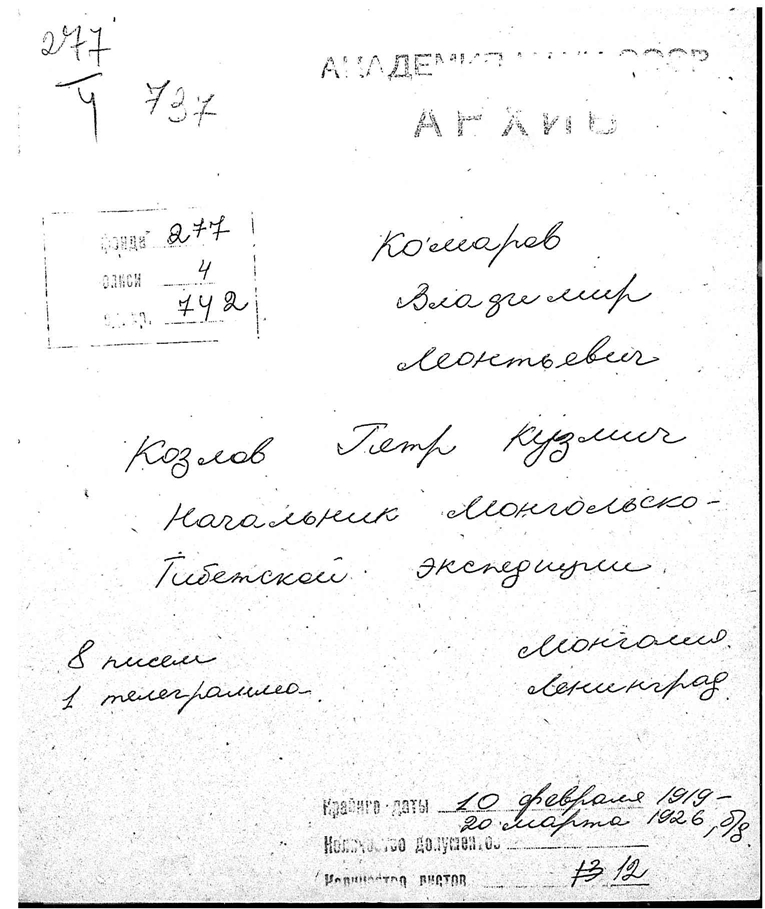 277
4 737
АКАДЕМИЯ НАУК СССР
АРХИВ
фонда 277
описи 4
ед. хр. 742
Комаров
Владимир
Леонтьевич
Козлов Петр Кузмич
Начальник Монгольско-
Тибетской экспедиции.
8 писем
1 телеграмма
Монголия.
Ленинград.
Крайние даты 10 февраля 1919 –
20 марта 1926, б/д.
Количество документов
Количество листов 13 12